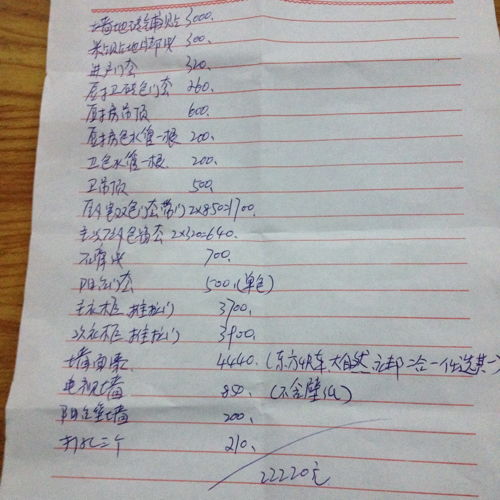 墙地砖铺贴 3000、
地脚线 300、
进户门套 320、
厨卫 包门套 260、
厨房吊顶 600、
厨房包水管一根 200、
卫包水管一根、 200、
卫吊顶 500、
包门套带门 2×850=1700、
包窗套 2×320=640、
石膏线 700、
阳台门套 500、(单包)
主衣柜 推拉门 3700、
次衣柜 推拉门 3900、
墙面漆 4440、(东方 大自然 二合一任选其一)
电视墙 850 (不含壁纸)
阳台 墙 200、
打孔三个 210、
22220元